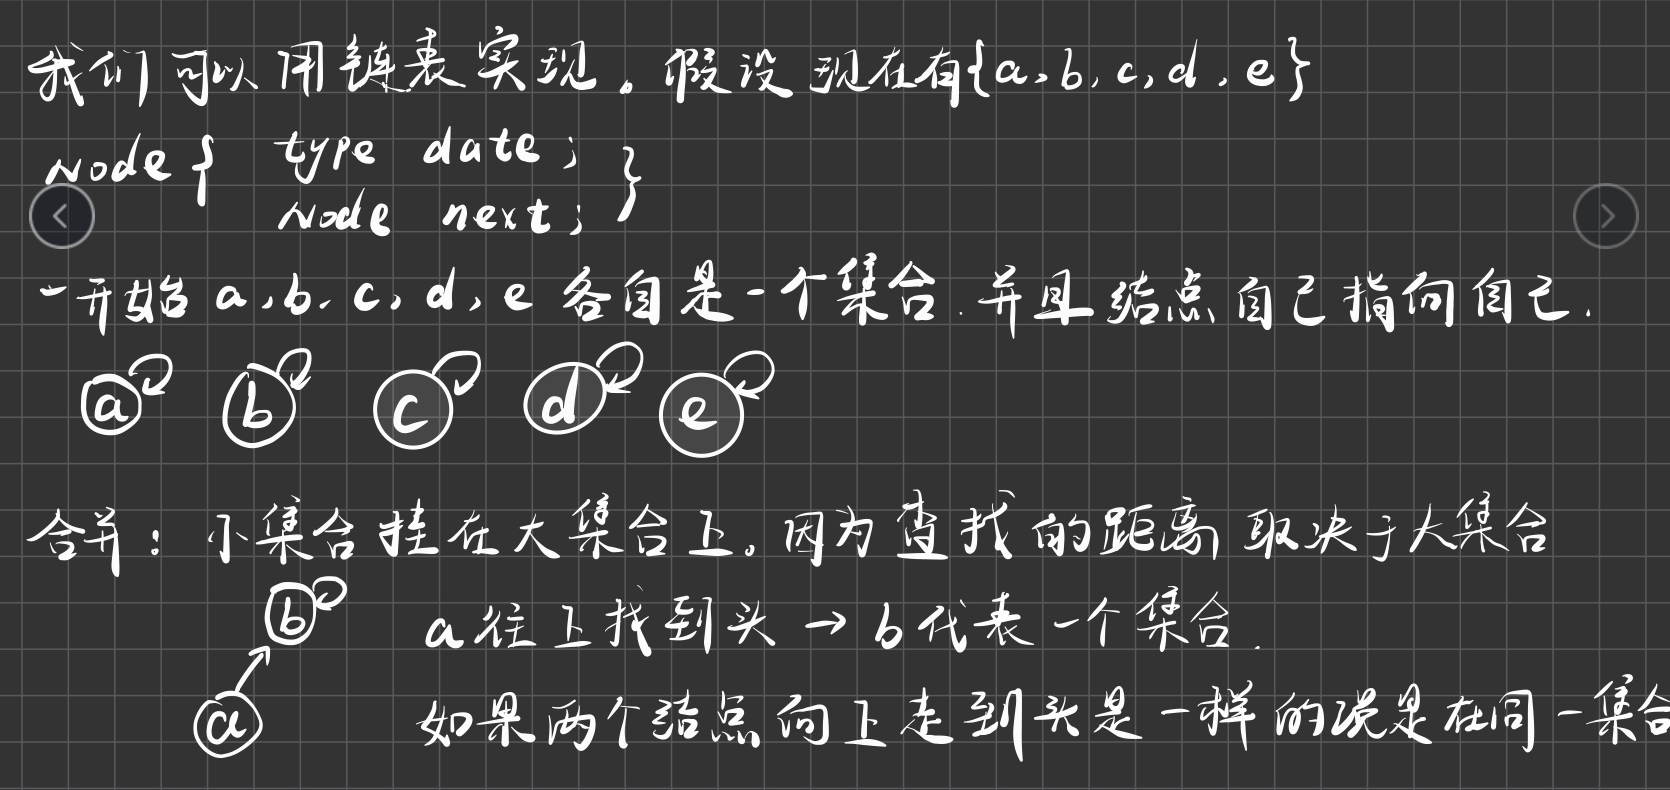 我们可以用链表实现。假设现在有{a,b,c,d,e}
Node { type date; }
Node next;
一开始 a,b,c,d,e 各自是一个集合.并且结点自己指向自己.
a b c d e
合并：小集合挂在大集合上。因为查找的距离取决于大集合
b a往上找到头→b代表一个集合.
a 如果两个结点向上走到头是一样的说是在同一集合